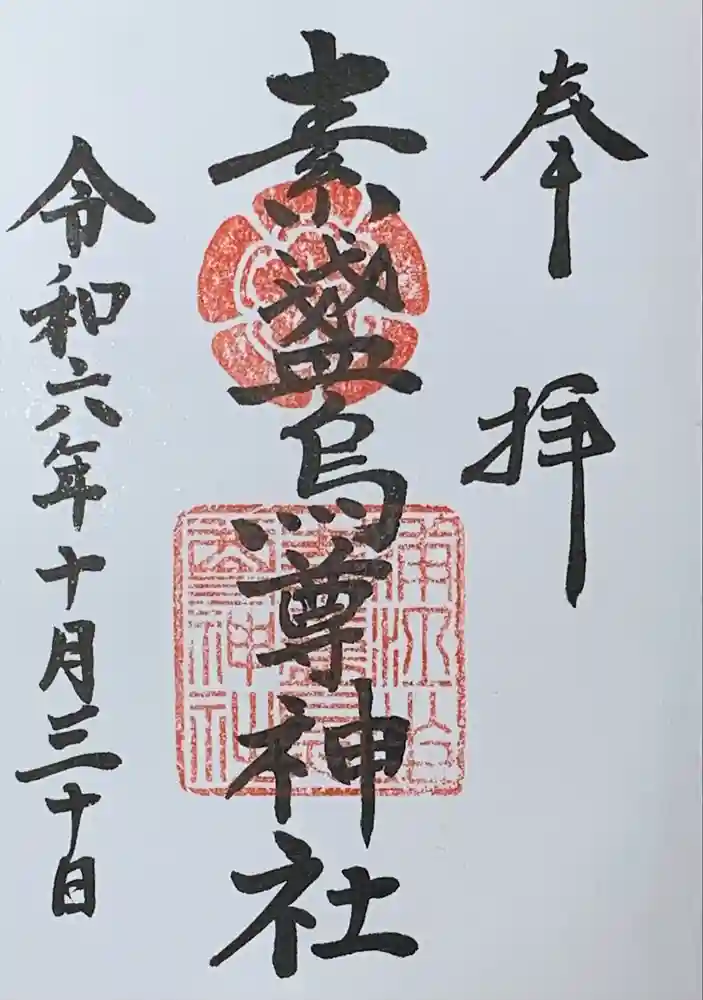 奉拝
素盞烏尊神社
令和六年十月三十日